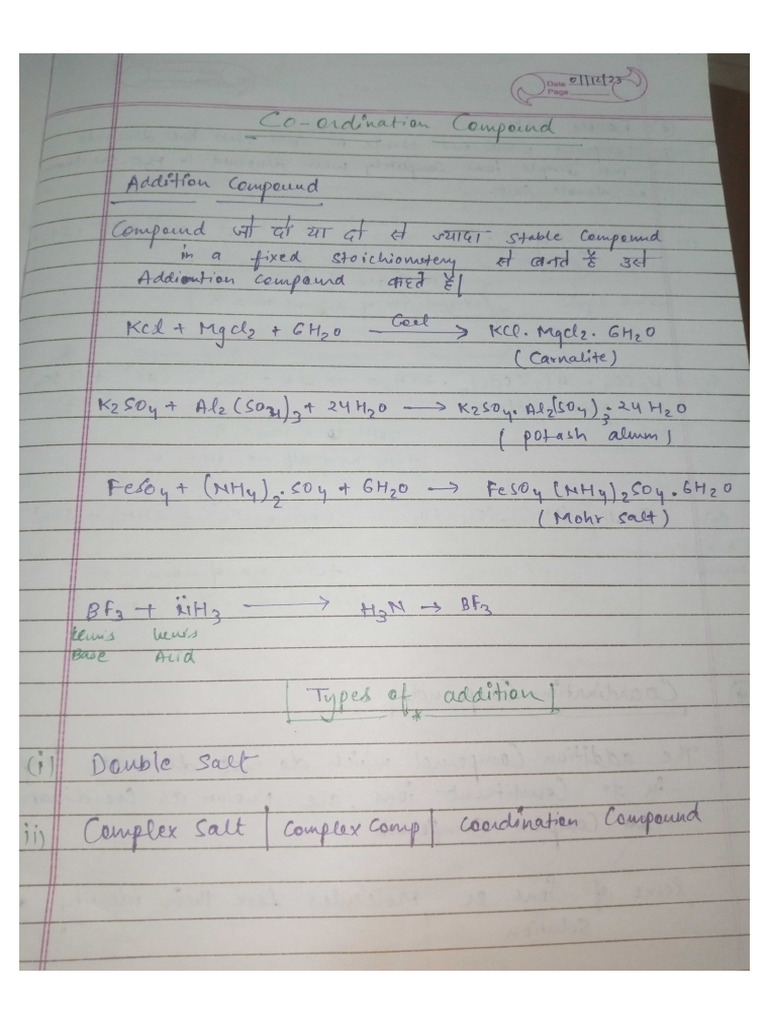 Date 01/12/23
Page
Co-ordination Compound
Addition Compound
Compound जो दो या दो से ज्यादा stable Compound
in a fixed stoichiometery से बनते है उसे
Addioution compound कहते है।
KCl + MgCl2 + 6H2O ⟶ KCl. MgCl2. 6H2O
(Carnalite)
K2SO4 + Al2(SO4)3 + 24H2O ⟶ K2SO4. Al2(SO4)3. 24H2O
(potash alum)
FeSO4 + (NH4)2.SO4 + 6H2O ⟶ FeSO4 (NH4)2SO4. 6H2O
(Mohr salt)
BF3 + N̈H3 ⟶ H3N → BF3
Lewis Lewis
Base Acid
Types of addition
*
(i) Double salt
ii) Complex Salt | Complex Comp | Coordination Compound